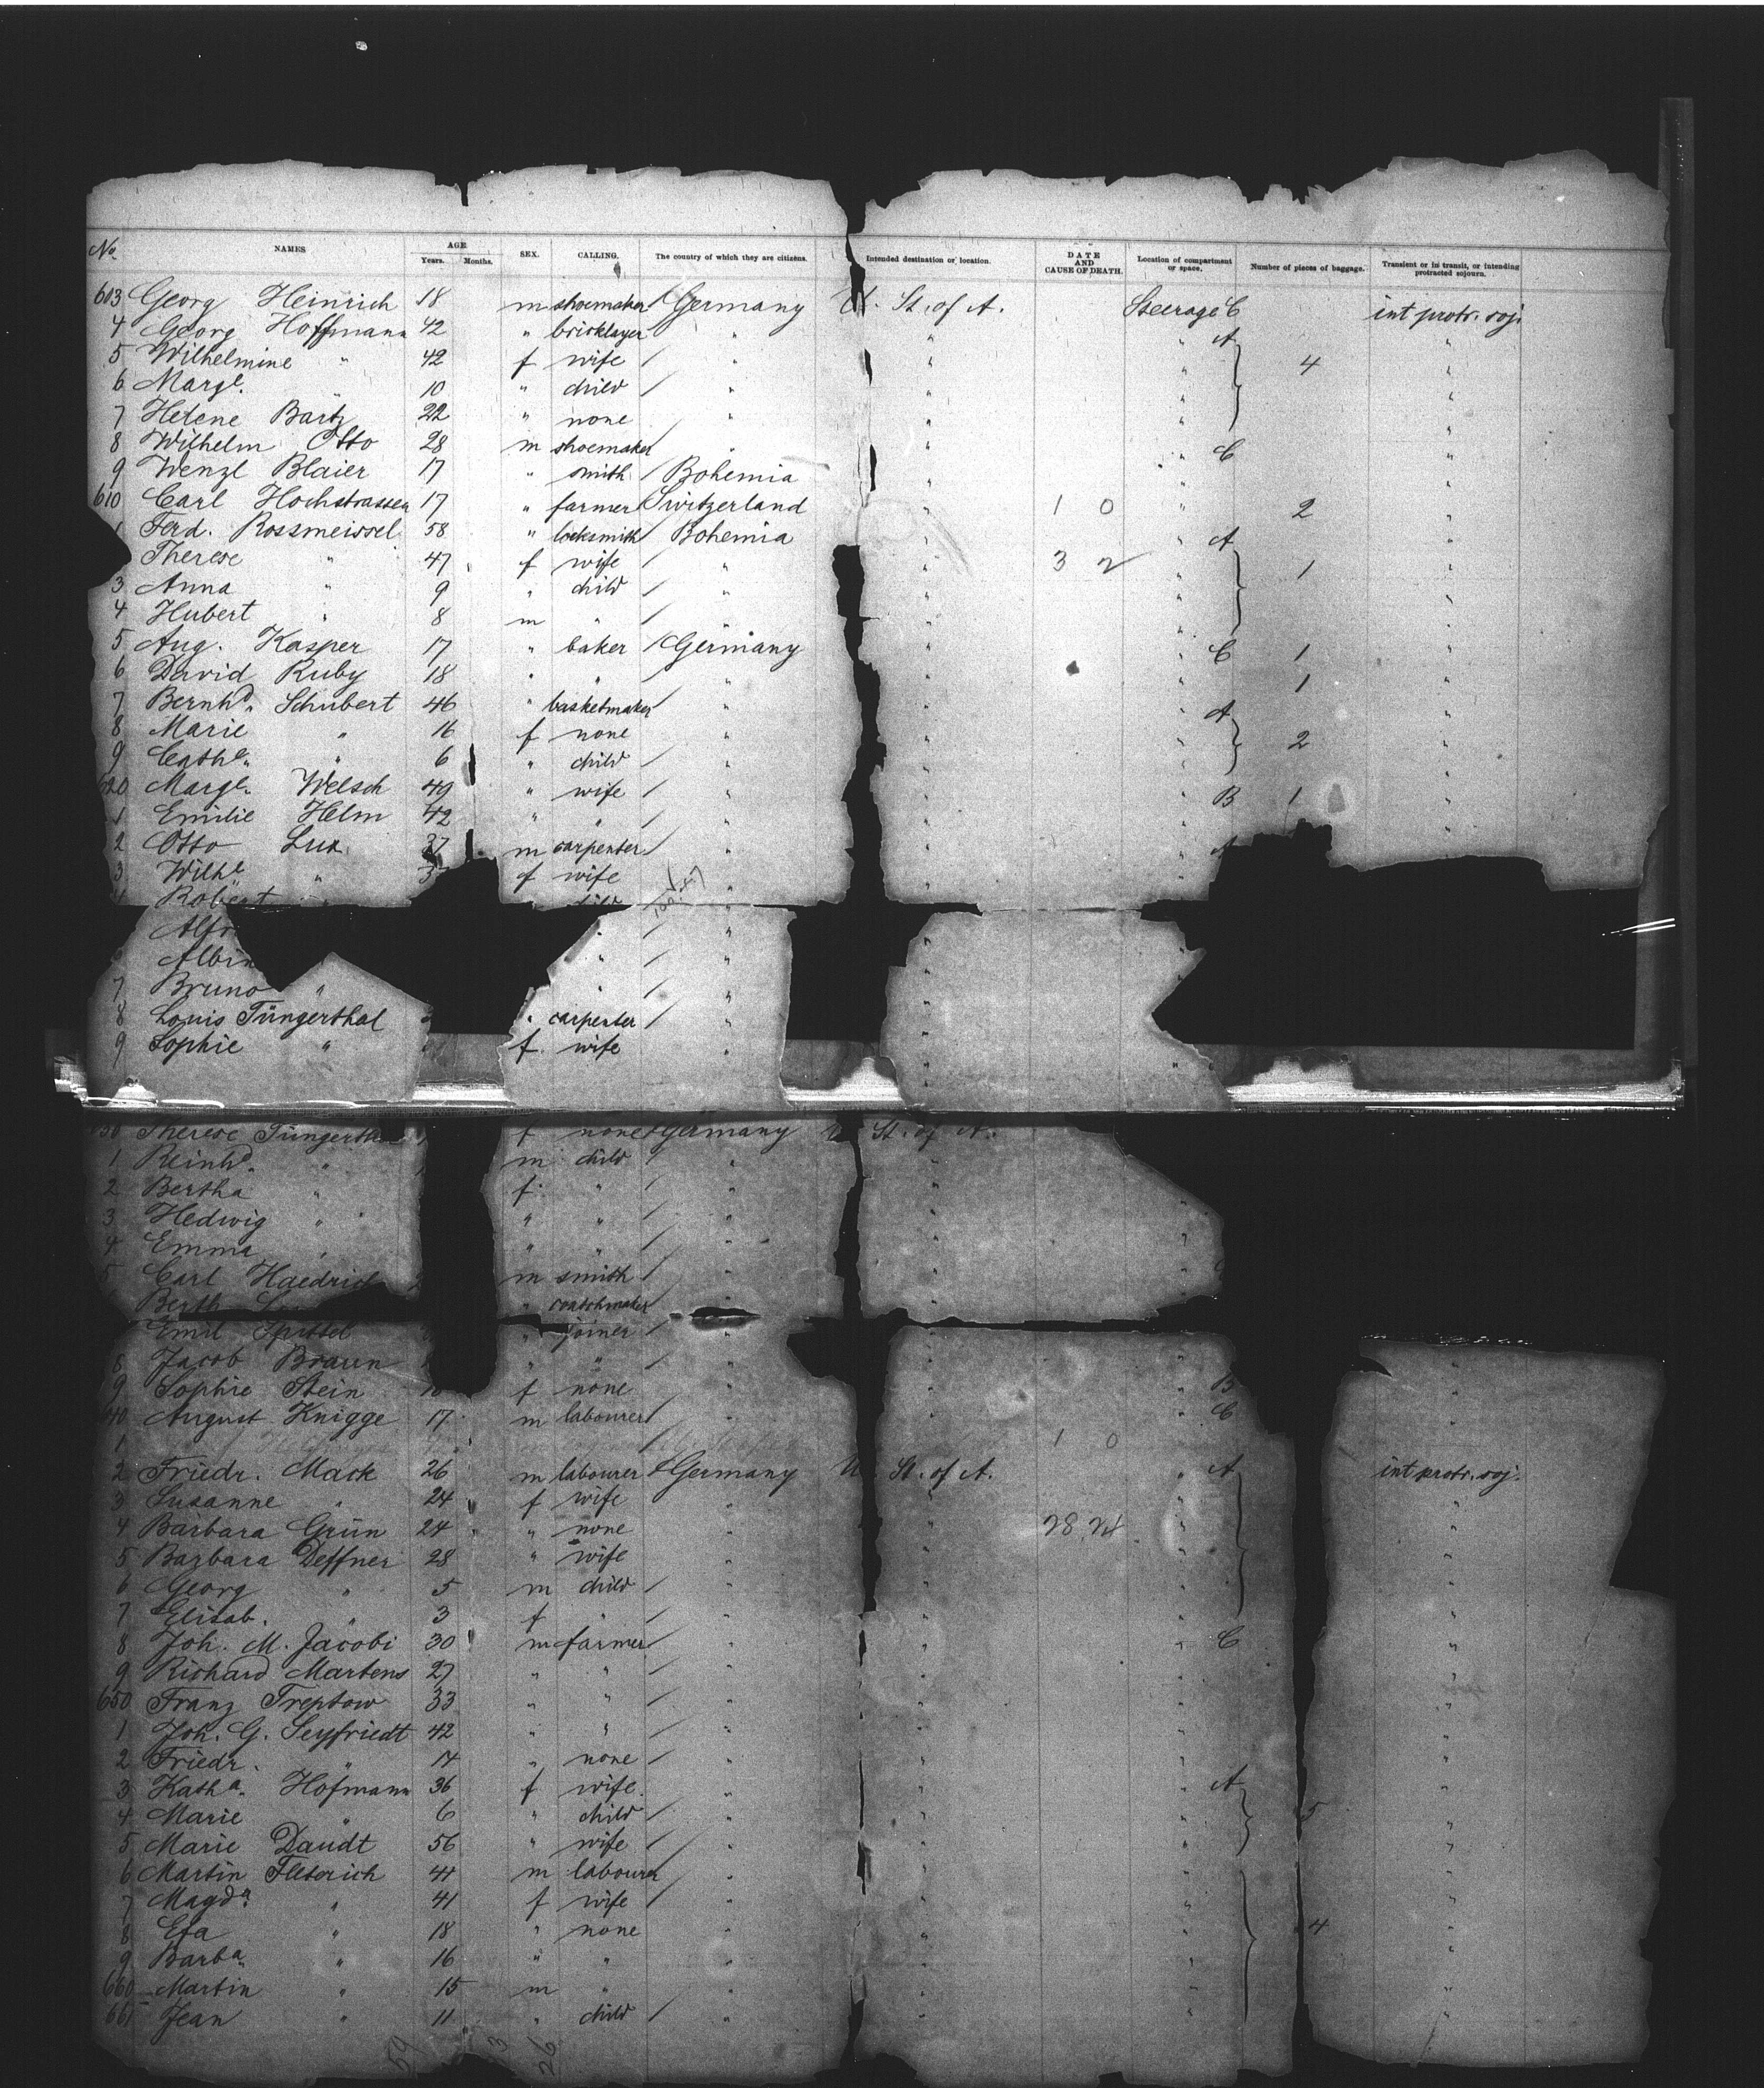 No. NAMES AGE Years. Months. SEX. CALLING. The country of which they are citizens. Intended destination or location. DATE AND CAUSE OF DEATH. Location of compartment or space. Number of pieces of baggage. Transient or in transit, or intending protracted sojourn.
603 Georg Heinrich 18 m shoemaker / Germany U. St. of A. Steerage C int protr. soj.
4 Georg Hoffmann 42 " bricklayer " " " A "
5 Wilhelmine " 42 f wife / " " " 4 "
6 Margt. 10 " child / " " " "
7 Helene Bartz 22 " none " " " "
8 Wilhelm Otto 28 m shoemaker " " " C "
9 Wenzl Blaier 17 " smith / Bohemia " " "
610 Carl Hochstrasser 17 " farmer Switzerland " 1 0 " 2 "
1 Ferd. Rossmeissel 58 " locksmith Bohemia " " A "
Therese " 47 f wife / " " 3 2 " 1 "
3 Anna " 9 " child / " " " "
4 Hubert " 8 m " / " " " "
5 Aug. Kasper 17 " baker / Germany " " C 1 "
6 David Ruby 18 " " / " " " 1 "
7 Bernhd. Schubert 46 " basketmaker / " " " A "
8 Marie " 16 f none " " " 2 "
9 Cathe. " 6 " child / " " " "
620 Margt. Welsch 49 " wife / " " B 1 "
1 Emilie Helm 42 " " / " " "
2 Otto Lux 37 m carpenter / " " A
3 Wilhe. " f wife " "
4 Robert
Alfr " / " "
Albin " / " "
7 Bruno " " / " "
8 Louis Tüngerthal " carpenter / " "
9 Sophie " f. wife " "
630 Therese Tüngerth f none / Germany U St. of A.
1 Reinhd. " m child / " "
2 Bertha " f. " / " "
3 Hedwig " " " / " "
4 Emma " " " / " "
5 Carl Haedrich m smith / " "
Berth " coachmaker
Emil Spittel " joiner /
8 Jacob Braun " " / " "
9 Sophie Stein f none " " B "
40 August Knigge 17 m labourer / " " " C "
1 / 1 0
2 Friedr. Mack 26 m labourer / Germany U. St. of A. " A int protr. soj.
3 Susanne " 24 f wife " " " "
4 Barbara Grün 24 " none " " 28 24 " "
5 Barbara Deffner 28 " wife " " " "
6 Georg " 5 m child / " " " "
7 Elisab. " 3 f " / " " " "
8 Joh. M. Jacobi 30 m farmer / " " " C "
9 Richard Martens 27 " " / " " " "
650 Franz Treptow 33 " " / " " " "
1 Joh. G. Seyfriedt 42 " " / " " " "
2 Friedr. " 14 " none / " " " "
3 Katha. Hofmann 36 f wife. " " A "
4 Marie " 6 " child / " " " 5 "
5 Marie Daudt 56 " wife / " " " "
6 Martin Fleterich 41 m labourer " " " "
7 Magda. " 41 f wife / " " " "
8 Efa " 18 " none " " " 4 "
9 Barba. " 16 " " " " " "
660 Martin " 15 m " " " " "
661 Jean " 11 " child / " " " "
59 3 26